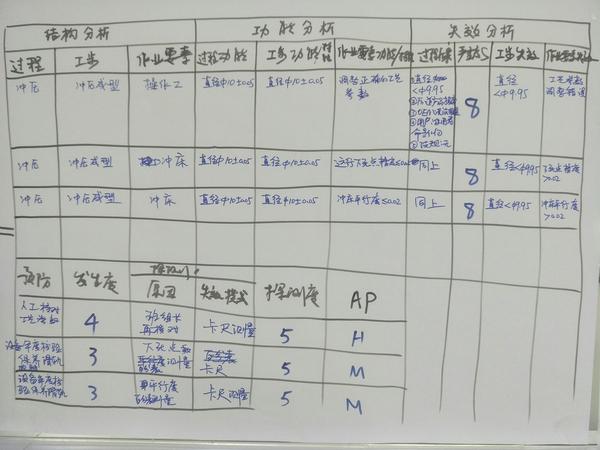 结构分析 功能分析 失效分析
过程 工步 作业要素 过程功能 工步功能/特性 作业要素功能/特性 过程后果 严重度S 工步失效 作业要素失效
冲压 冲压成型 操作工 直径Φ10±0.05 直径Φ10±0.05 调整正确的工艺参数 直径<Φ9.95 8 直径<Φ9.95 工艺参数调整错误
冲压 冲压成型 冲床 直径Φ10±0.05 直径Φ10±0.05 运行下死点精度≤0.02 同上 8 直径<Φ9.95 下死点精度>0.02
冲压 冲压成型 冲床 直径Φ10±0.05 直径Φ10±0.05 冲床平行度≤0.02 同上 8 直径<Φ9.95 冲床平行度>0.02
预防 发生度 探测
原因 失效模式 探测度 AP
人工核对 4 班组长再核对 卡尺测量 5 H
设备年度校验保养 3 下死点 测量 卡尺 5 M
设备年度校验保养 3 平行度 测量 卡尺测量 5 M